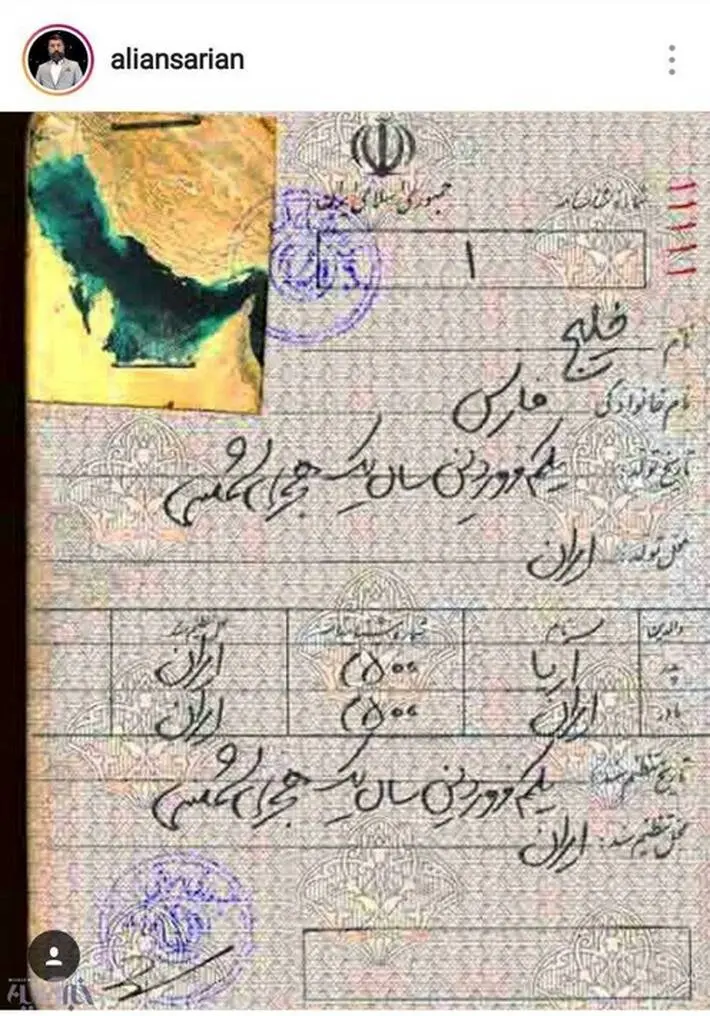 aliansarian
جمهوری اسلامی ایران
شماره شناسنامه
۱۱۱۱۱۱
۱
نام خلیج
نام خانوادگی فارس
تاریخ تولد: یکم فروردین سال یک هجری شمسی
محل تولد: ایران
والدین نام شماره شناسنامه محل تنظیم سند
پدر آریا ۲۵۰۰ ایران
مادر ایران ۲۵۰۰ ایران
تاریخ تنظیم سند: یکم فروردین سال یک هجری شمسی
محل تنظیم سند: ایران